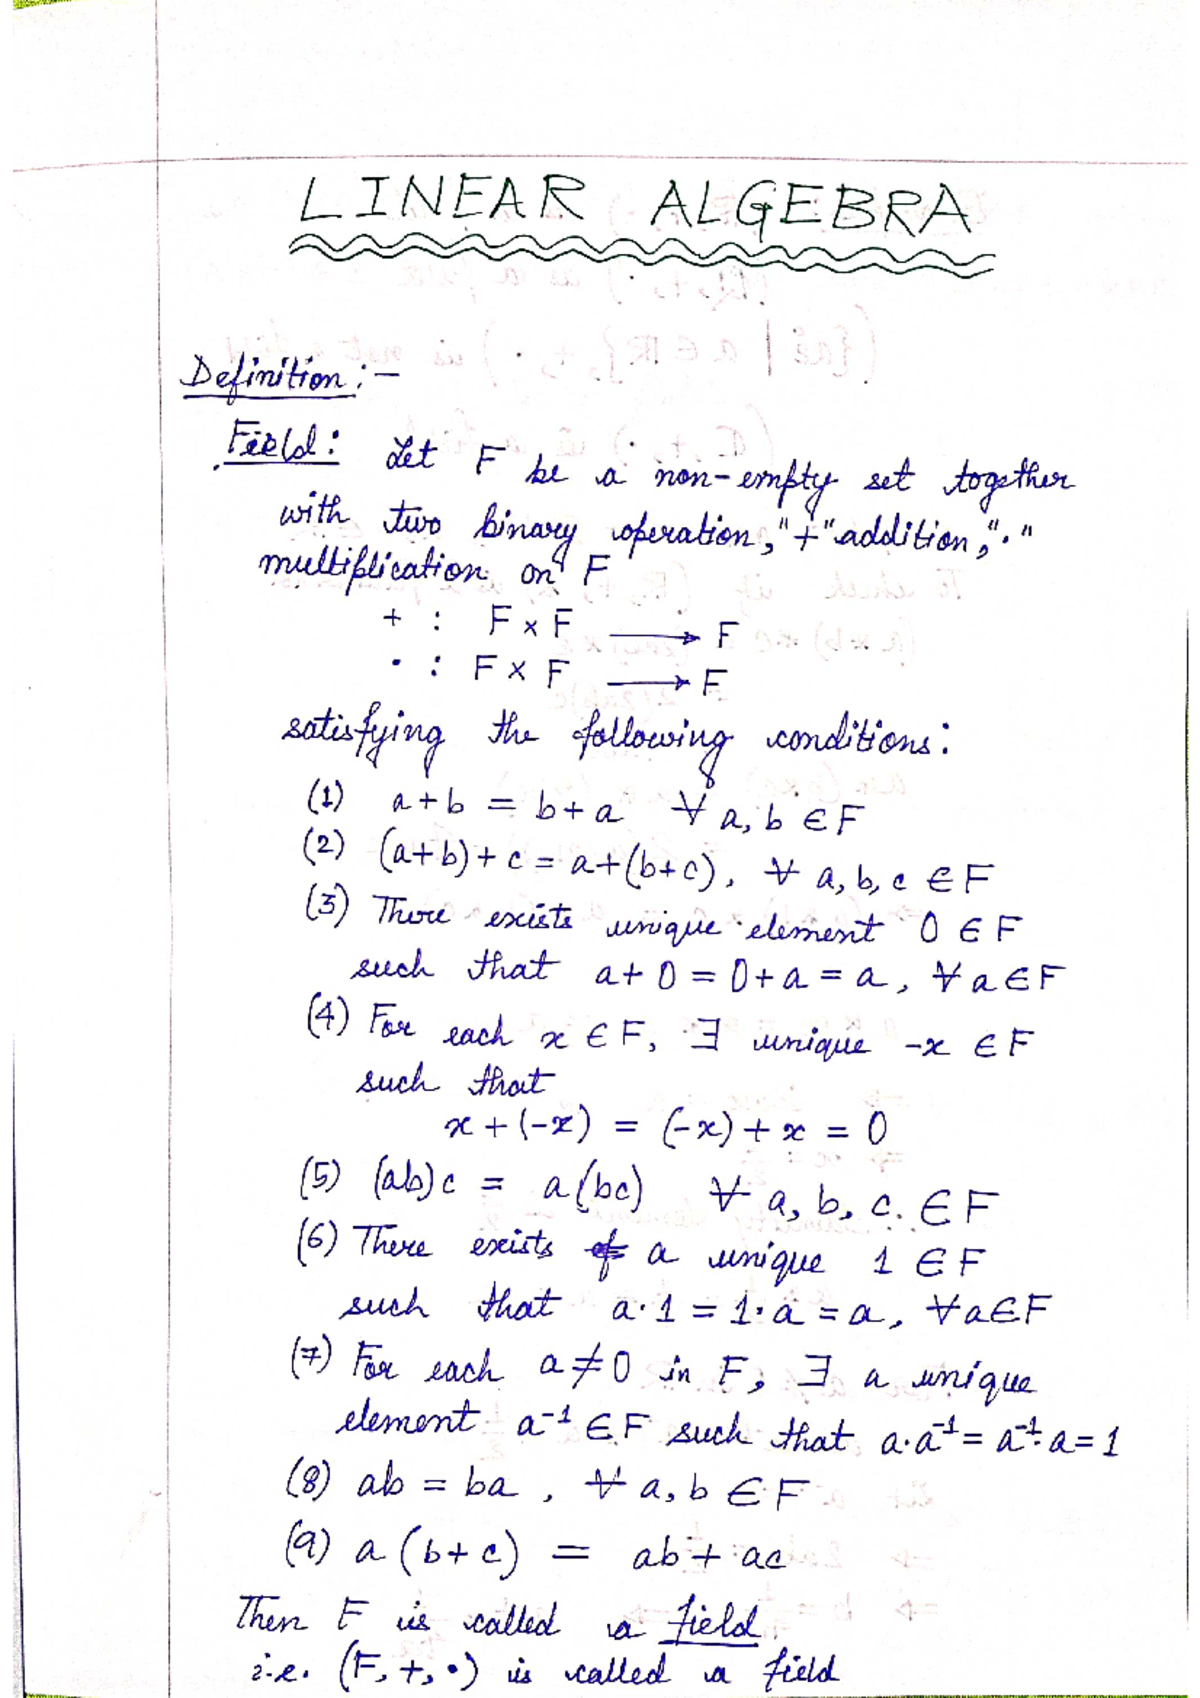 LINEAR ALGEBRA
Definition:-
Field: Let F be a non-empty set together
with two binary operation, "+" addition, "·"
multiplication on F
+ : F × F ⟶ F
· : F × F ⟶ F
satisfying the following conditions:
(1) a+b = b+a ∀ a, b ∈ F
(2) (a+b)+c = a+(b+c), ∀ a, b, c ∈ F
(3) There exists unique element 0 ∈ F
such that a+0 = 0+a = a, ∀ a ∈ F
(4) For each x ∈ F, ∃ unique -x ∈ F
such that
x + (-x) = (-x) + x = 0
(5) (ab)c = a(bc) ∀ a, b, c. ∈ F
(6) There exists a unique 1 ∈ F
such that a·1 = 1·a = a, ∀a∈F
(7) For each a≠0 in F, ∃ a unique
element a⁻¹ ∈ F such that a·a⁻¹ = a⁻¹·a = 1
(8) ab = ba, ∀ a, b ∈ F
(9) a(b+c) = ab + ac
Then F is called a field
i.e. (F, +, ·) is called a field